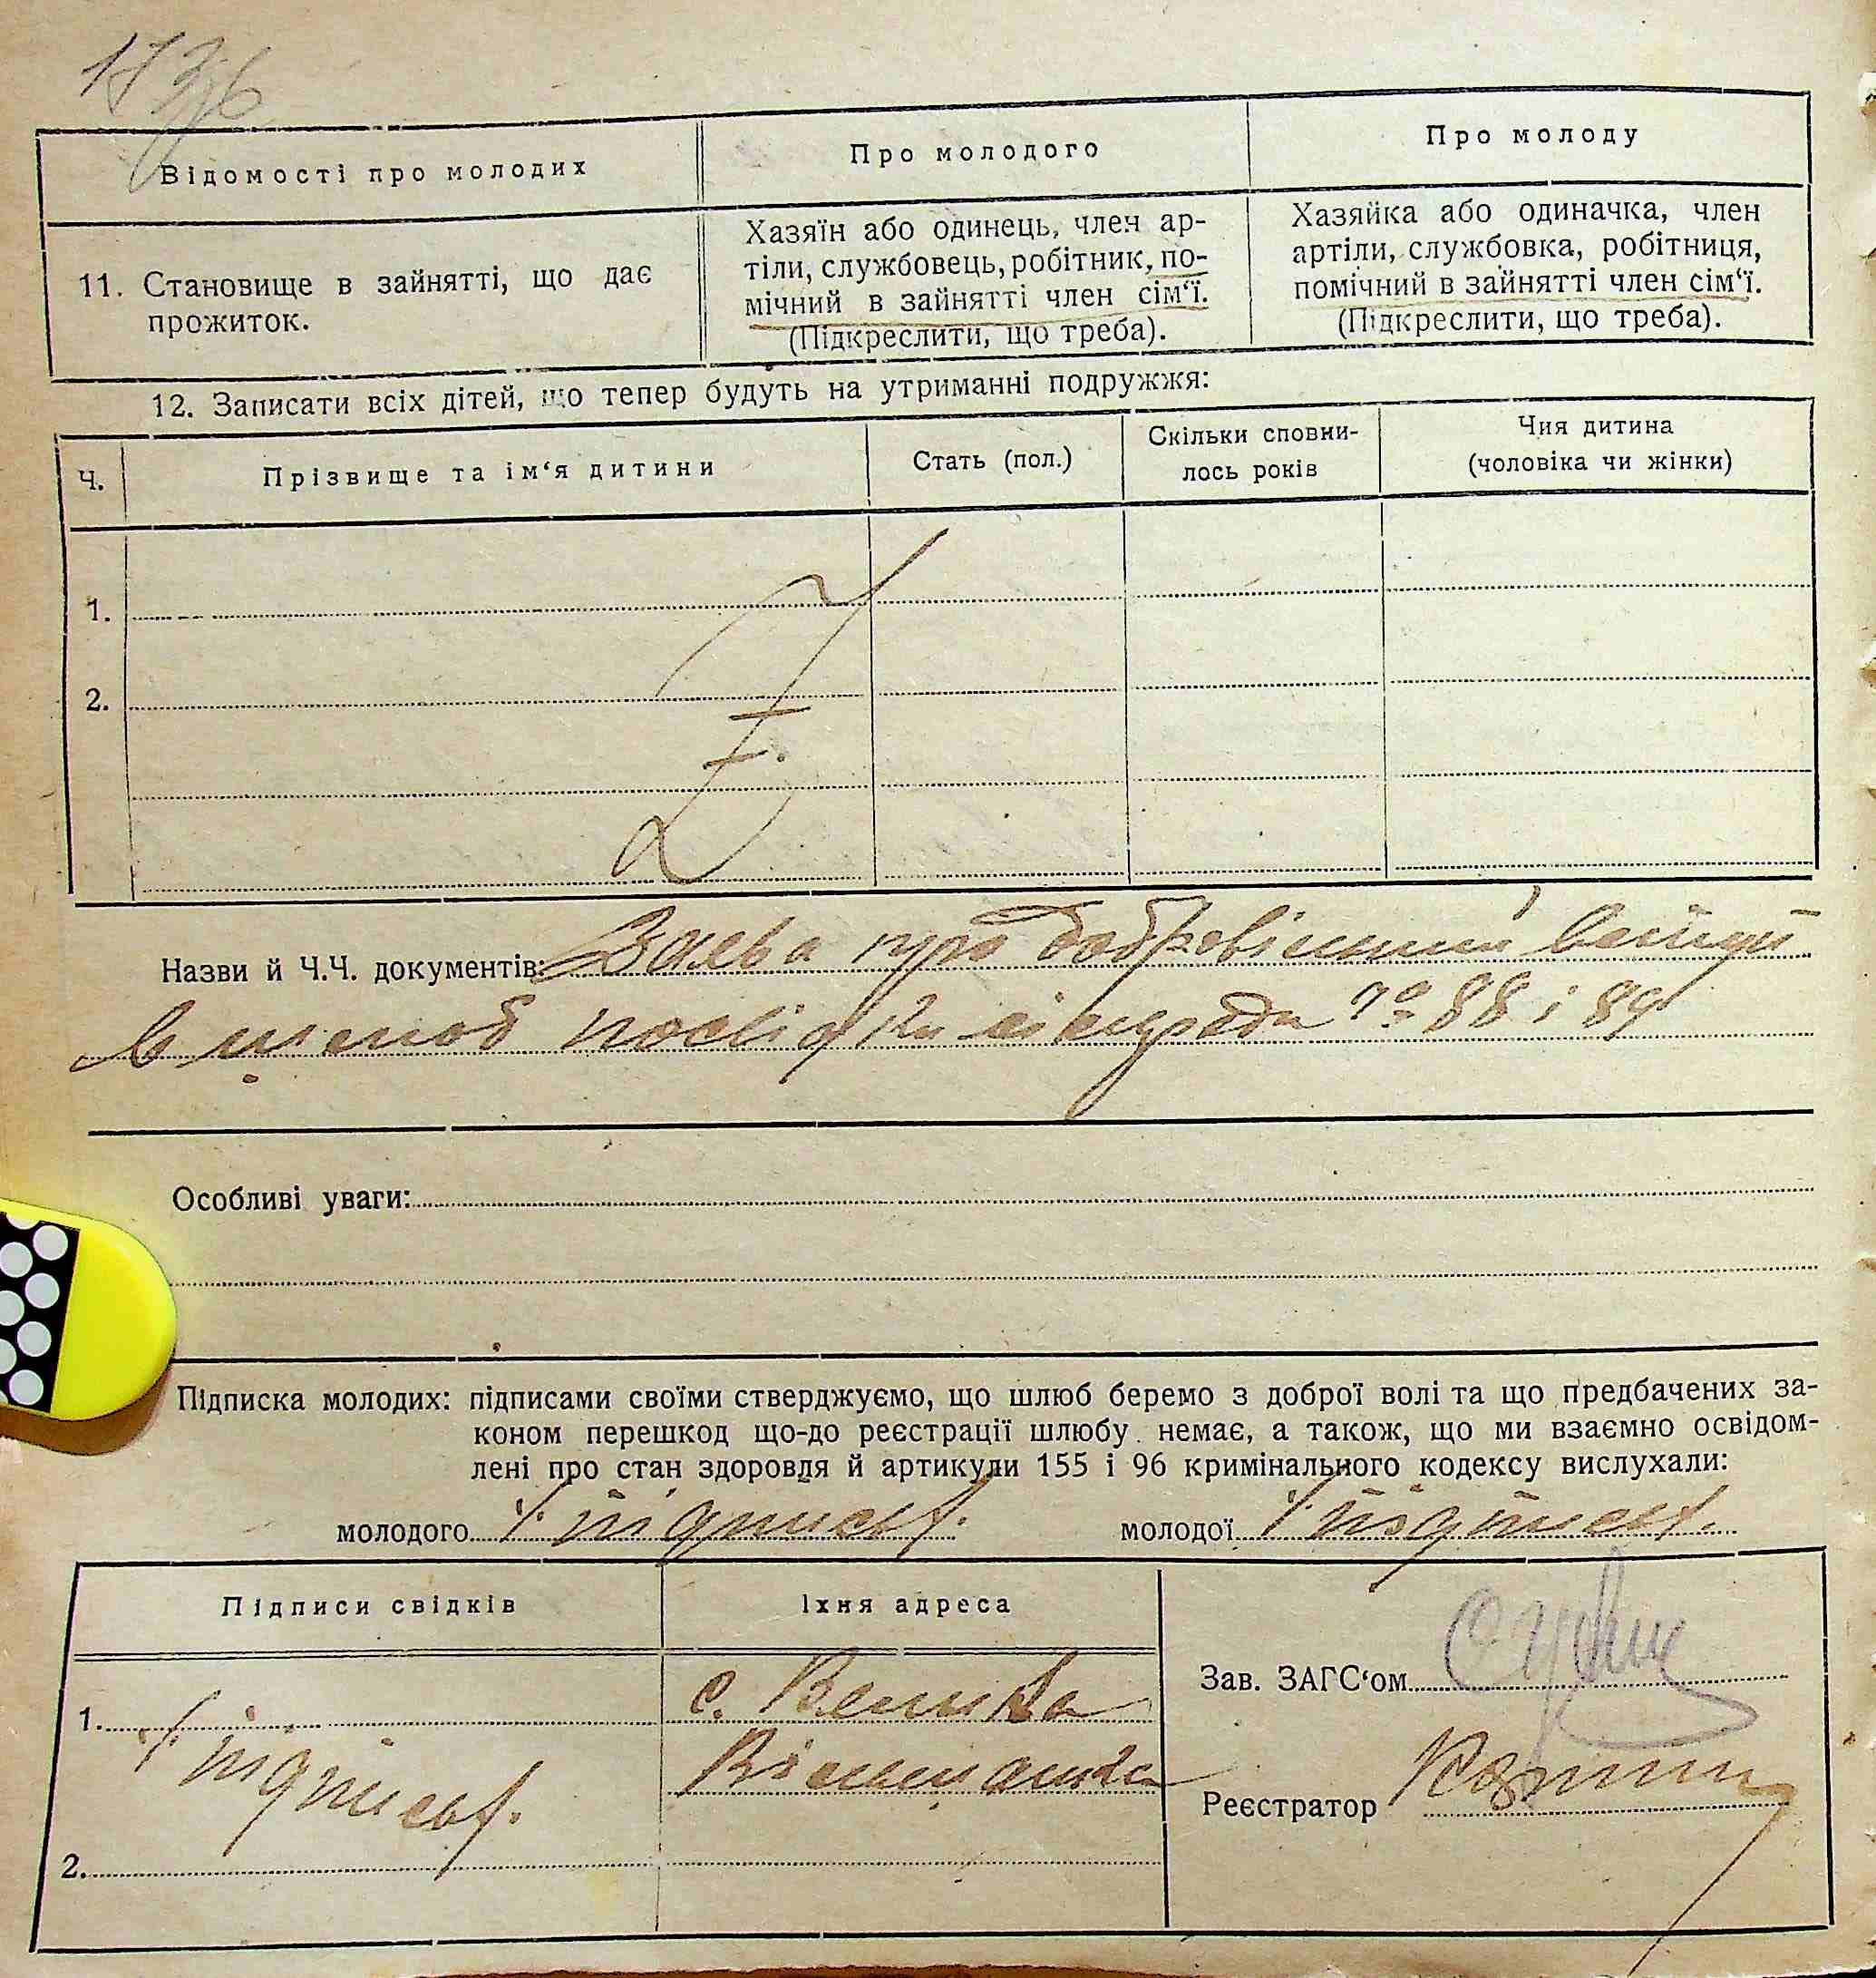 Відомості про молодих
Про молодого
Про молоду
11. Становище в зайнятті, що дає
прожиток.
Хазяїн або одинець, член ар-
тіли, службовець, робітник, по-
мічний в зайнятті член сім‘ї.
(Підкреслити, що треба).
Хазяйка або одиначка, член
артіли, службовка, робітниця,
помічний в зайнятті член сім‘ї.
(Підкреслити, що треба).
12. Записати всіх дітей, що тепер будуть на утриманні подружжя:
Ч.
Прізвище та ім‘я дитини
Стать (пол.)
Скільки сповни-
лось років
Чия дитина
(чоловіка чи жінки)
1.
2.
Назви й Ч.Ч. документів: Заява про добровісний вступ
в шлюб посвідки сікурада № 88 і 89
Особливі уваги:
Підписка молодих: підписами своїми стверджуємо, що шлюб беремо з доброї волі та що предбачених за-
коном перешкод що-до реєстрації шлюбу немає, а також, що ми взаємно освідом-
лені про стан здоровля й артикули 155 і 96 кримінального кодексу вислухали:
молодого /підписав/.
молодої /підписав/.
Підписи свідків
Їхня адреса
1.
/підписав/.
2.
с. Велика
Вільшанка
Зав. ЗАГС‘ом
Реєстратор